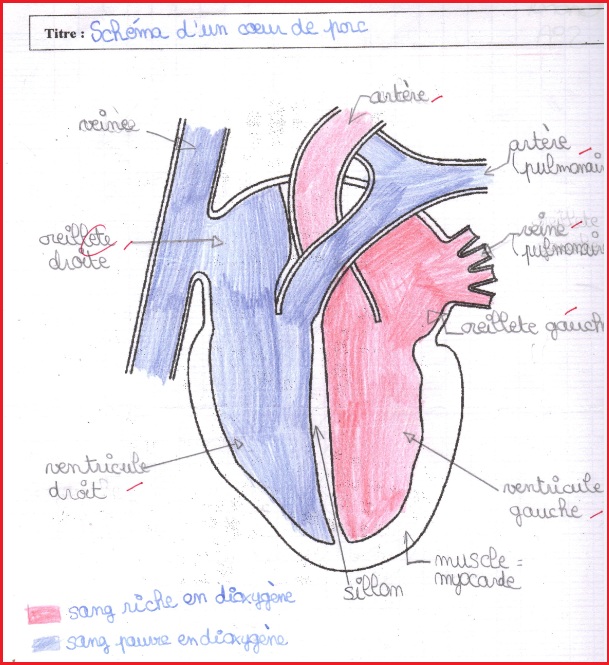 Titre : Schéma d'un cœur de porc
artère
veines
artère
pulmonai
oreillete
droite
veine
pulmonai
oreillete gauch
ventricule
droit
ventricule
gauche
muscle =
myocarde
sillon
sang riche en dioxygène
sang pauvre en dioxygène